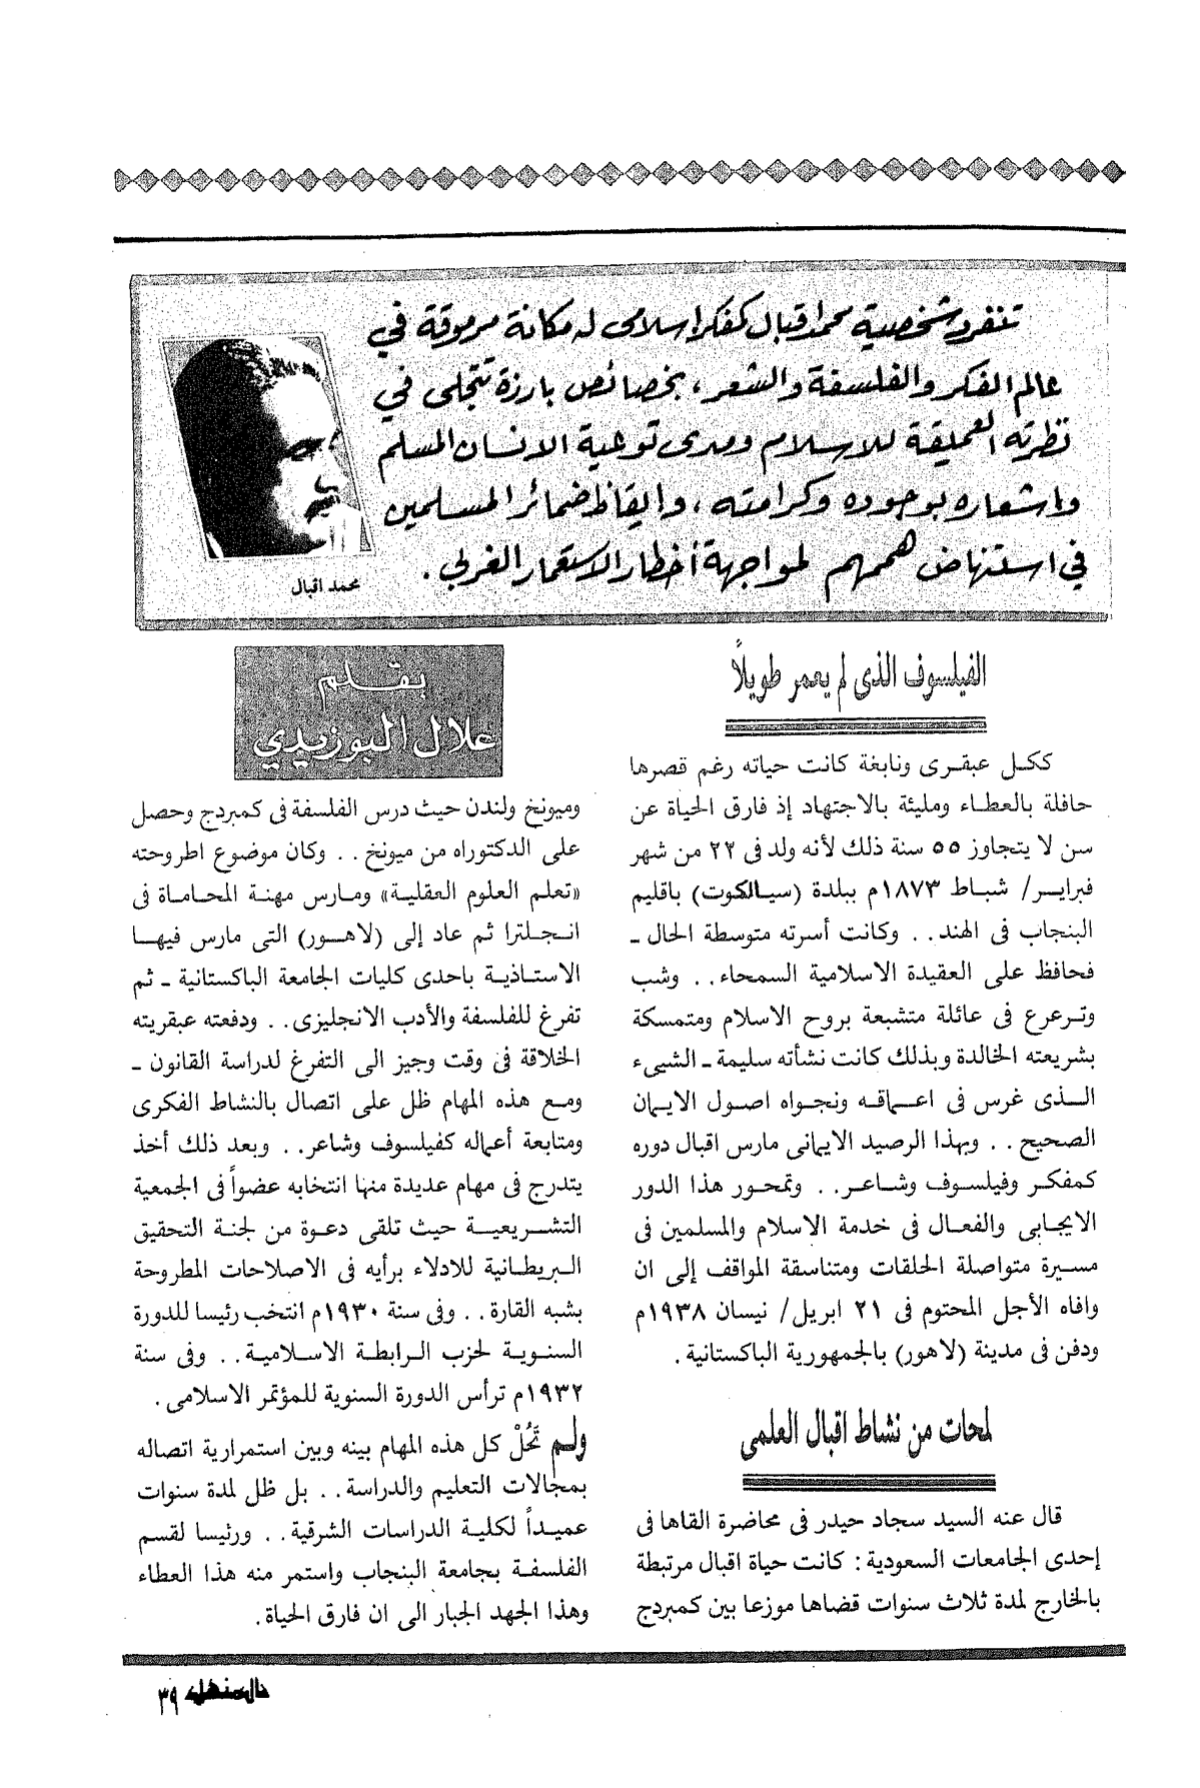 تنفرد شخصية محمد اقبال كمفكر اسلامى له مكانة مرموقة في
عالم الفكر والفلسفة والشعر ، بخصائص بارزة تتجلى في
نظرته العميقة للاسلام ومدى توعية الانسان المسلم
واشعاره بوجوده وكرامته ، وايقاظ ضمائر المسلمين
في استنهاض هممهم لمواجهة أخطار الاستعمار الغربي .
محمد اقبال
الفيلسوف الذى لم يعمر طويلاً
ككل عبقرى ونابغة كانت حياته رغم قصرها
حافلة بالعطاء ومليئة بالاجتهاد إذ فارق الحياة عن
سن لا يتجاوز ٥٥ سنة ذلك لأنه ولد فى ٢٢ من شهر
فبراير/ شباط ١٨٧٣م ببلدة (سيالكوت) باقليم
البنجاب فى الهند . . وكانت أسرته متوسطة الحال ـ
فحافظ على العقيدة الاسلامية السمحاء . . وشب
وترعرع فى عائلة متشبعة بروح الاسلام ومتمسكة
بشريعته الخالدة وبذلك كانت نشأته سليمة ـ الشيىء
الذى غرس فى اعماقه ونجواه اصول الايمان
الصحيح . . وبهذا الرصيد الايمانى مارس اقبال دوره
كمفكر وفيلسوف وشاعر . . وتمحور هذا الدور
الايجابى والفعال فى خدمة الاسلام والمسلمين فى
مسيرة متواصلة الحلقات ومتناسقة المواقف إلى ان
وافاه الأجل المحتوم فى ٢١ ابريل/ نيسان ١٩٣٨م
ودفن فى مدينة (لاهور) بالجمهورية الباكستانية .
لمحات من نشاط اقبال العلمى
قال عنه السيد سجاد حيدر فى محاضرة القاها فى
إحدى الجامعات السعودية : كانت حياة اقبال مرتبطة
بالخارج لمدة ثلاث سنوات قضاها موزعا بين كمبردج
بقلم
علال البوزيدي
وميونخ ولندن حيث درس الفلسفة فى كمبردج وحصل
على الدكتوراه من ميونخ . . وكان موضوع اطروحته
«تعلم العلوم العقلية» ومارس مهنة المحاماة فى
انجلترا ثم عاد إلى (لاهور) التى مارس فيها
الاستاذية باحدى كليات الجامعة الباكستانية ـ ثم
تفرغ للفلسفة والأدب الانجليزى . . ودفعته عبقريته
الخلاقة فى وقت وجيز الى التفرغ لدراسة القانون ـ
ومع هذه المهام ظل على اتصال بالنشاط الفكرى
ومتابعة أعماله كفيلسوف وشاعر . . وبعد ذلك أخذ
يتدرج فى مهام عديدة منها انتخابه عضواً فى الجمعية
التشريعية حيث تلقى دعوة من لجنة التحقيق
البريطانية للادلاء برأيه فى الاصلاحات المطروحة
بشبه القارة . . وفى سنة ١٩٣٠م انتخب رئيسا للدورة
السنوية لحزب الرابطة الاسلامية . . وفى سنة
١٩٣٢م ترأس الدورة السنوية للمؤتمر الاسلامى .
ولم تَحُلْ كل هذه المهام بينه وبين استمرارية اتصاله
بمجالات التعليم والدراسة . . بل ظل لمدة سنوات
عميداً لكلية الدراسات الشرقية . . ورئيسا لقسم
الفلسفة بجامعة البنجاب واستمر منه هذا العطاء
وهذا الجهد الجبار الى ان فارق الحياة .
المنهل ٣٩